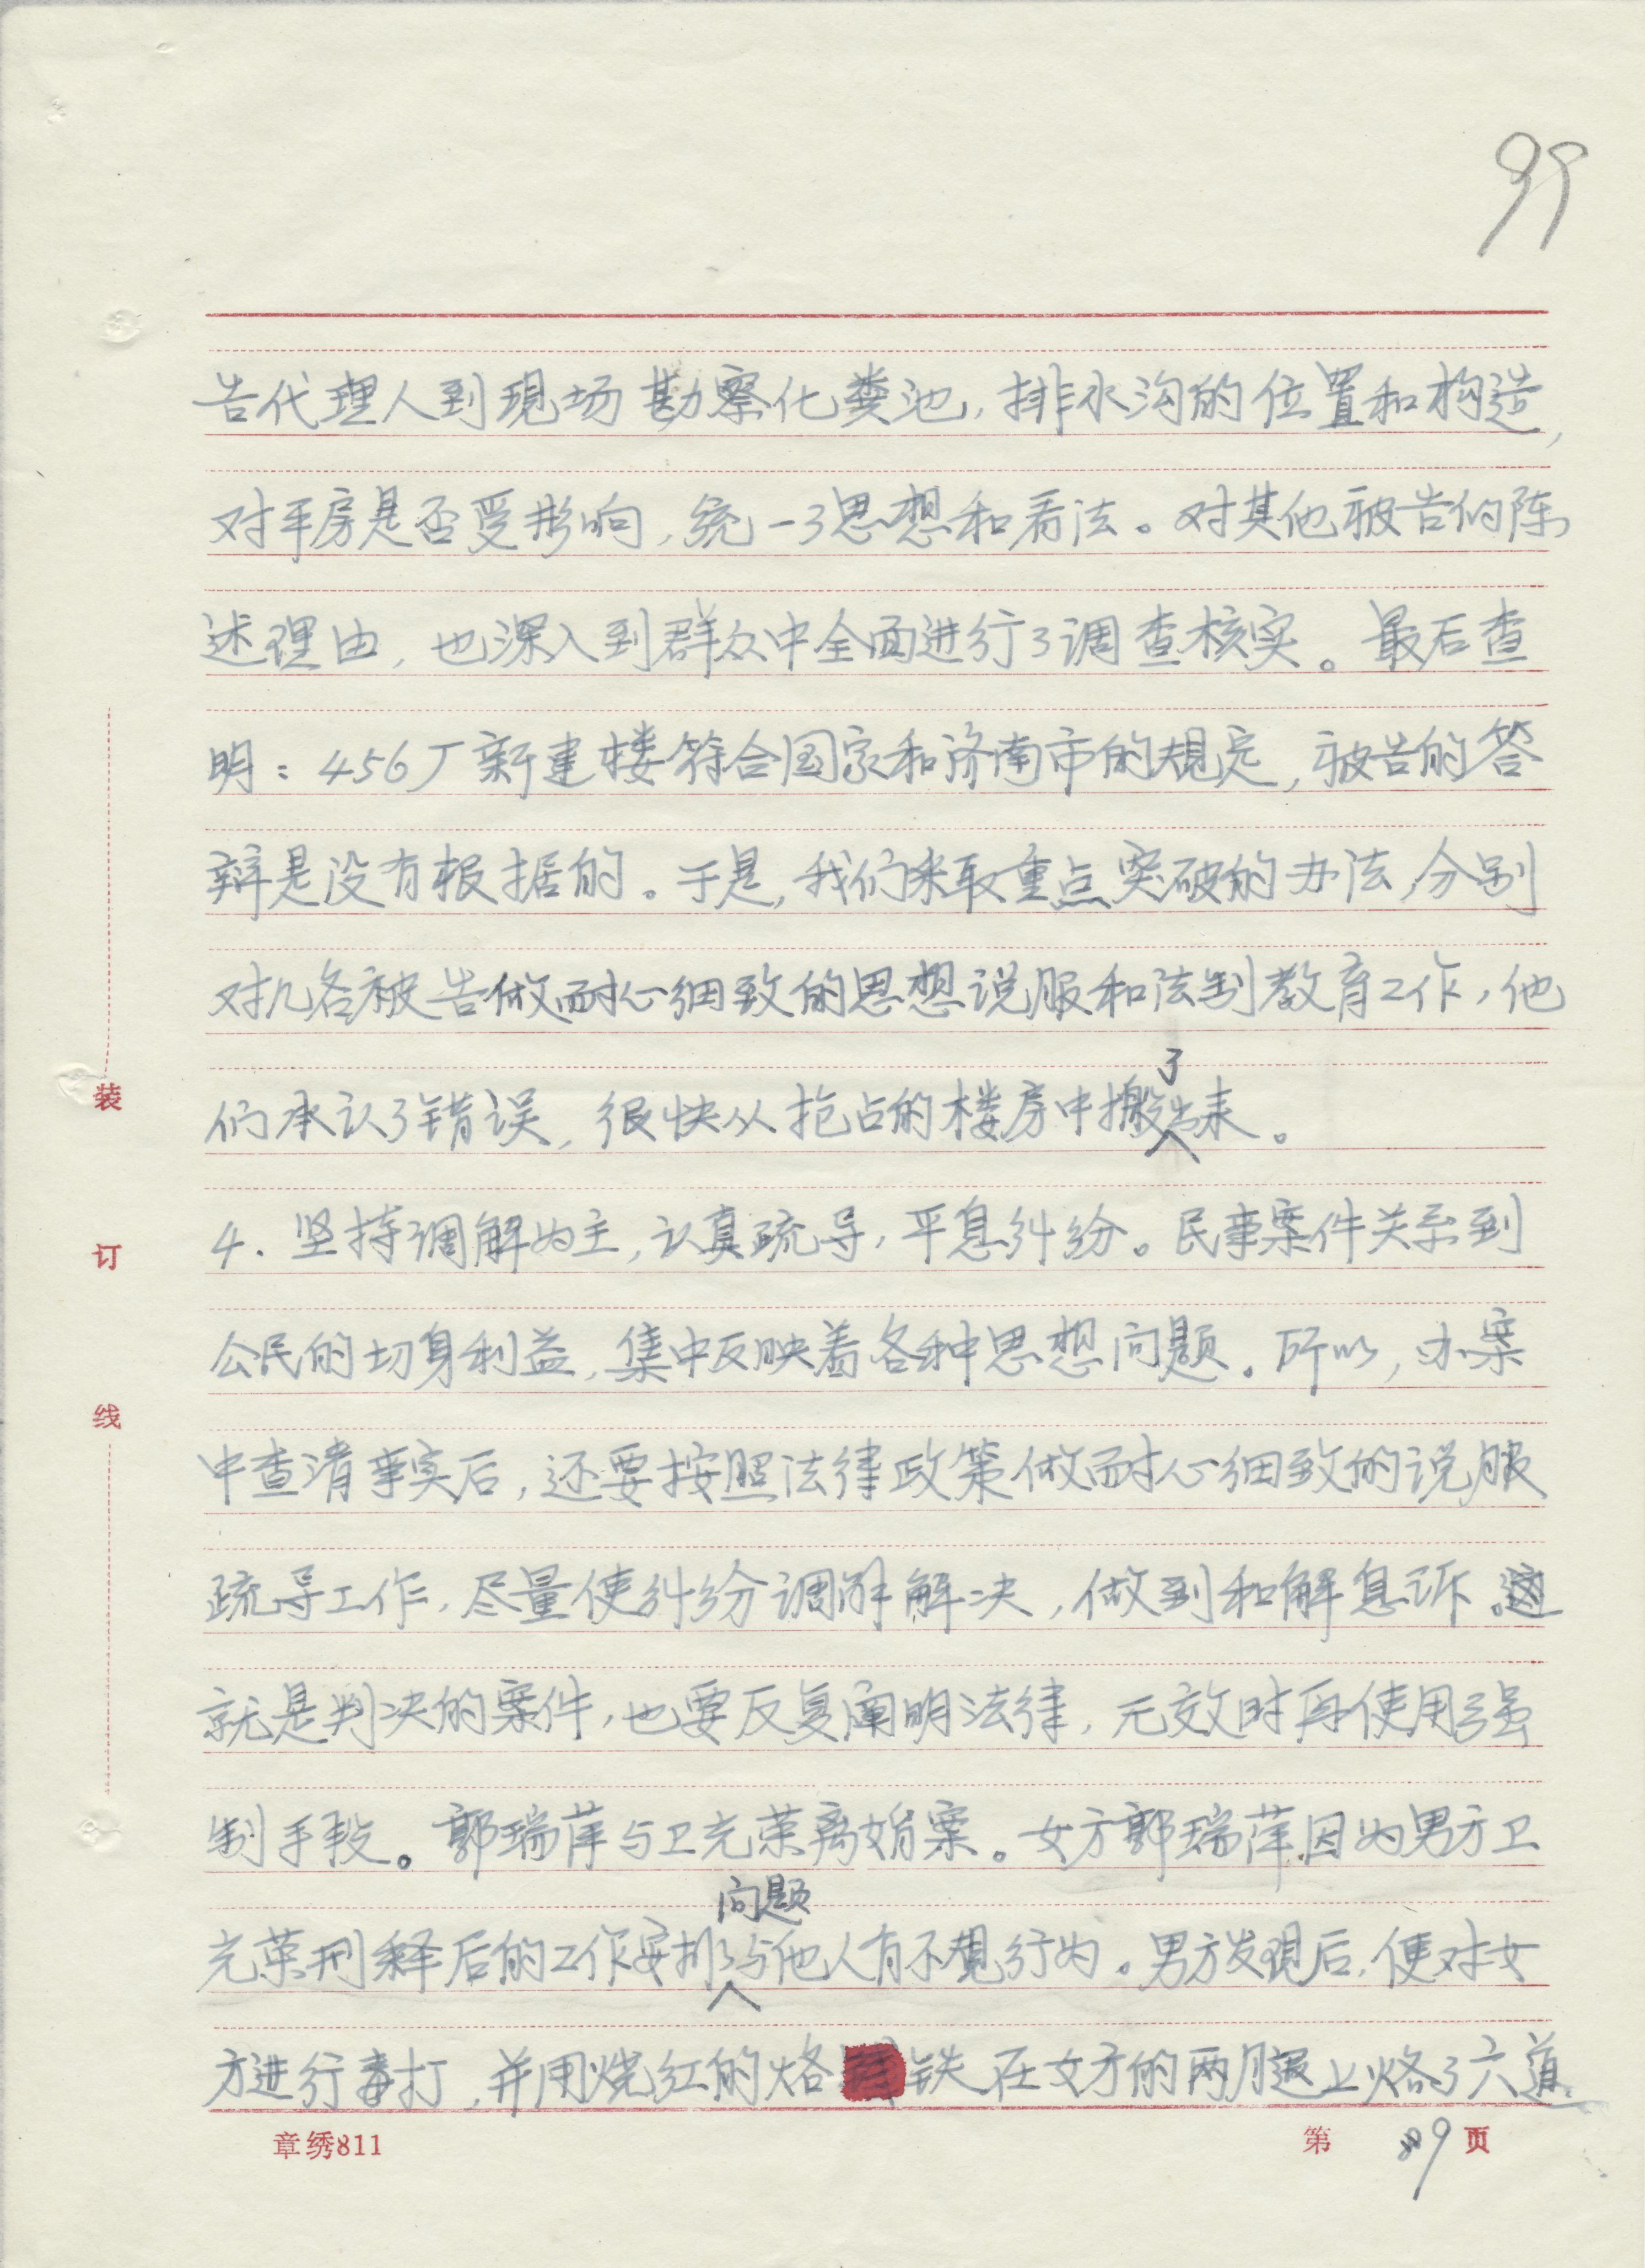 99
告代理人到现场勘察化粪池,排水沟的位置和构造,
对平房是否受影响,统一了思想和看法。对其他被告的陈
述理由,也深入到群众中全面进行了调查核实。最后查
明:456厂新建楼符合国家和济南市的规定,被告的答
辩是没有根据的。于是,我们采取重点突破的办法,分别
对几名被告做耐心细致的思想说服和法制教育工作,他
们承认了错误,很快从抢占的楼房中搬了出来。
4.坚持调解为主,认真疏导,平息纠纷。民事案件关系到
公民的切身利益,集中反映着各种思想问题。所以,办案
中查清事实后,还要按照法律政策做耐心细致的说服
疏导工作,尽量使纠纷调解解决,做到和解息诉。
就是判决的案件,也要反复阐明法律,无效时再使用强
制手段。郭瑞萍与卫光荣离婚案。女方郭瑞萍因为男方卫
光荣刑释后的工作安排问题与他人有不规行为。男方发现后,便对女
方进行毒打,并用烧红的烙铁在女方的两腿上烙了六道
装
订
线
章绣811
第 9 页